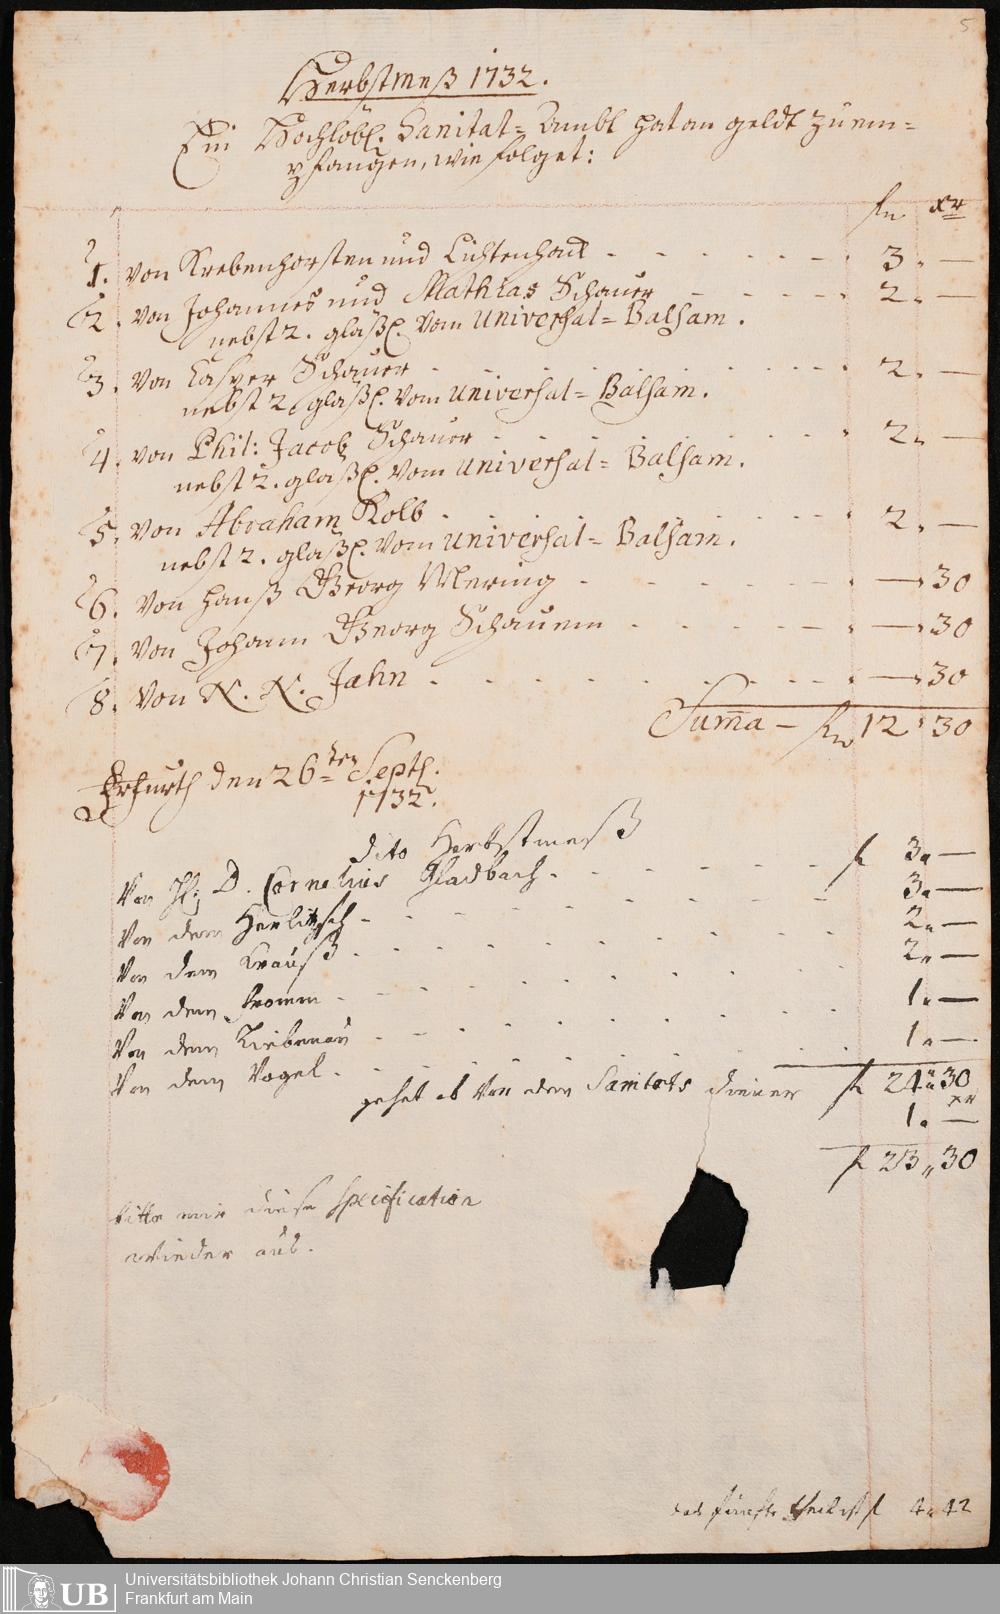 5
Herbstmeß 1732.
Ein Hochlöbl. Sanitat= Ambt hat an geldt zu em=
pfangen, wie folget:
fn. xr
1. von Krebenhorsten und Lichtenhan . . . . . . 3. —
2. von Johannes und Mathias Schauer — . . . . 2. —
nebst 2. glaßl. vom Universal= Balsam.
3. von Casper Schauer . . . . . . . . 2. —
nebst 2. glaßl. vom Universal= Balsam.
4. von Phil: Jacob Schauer . . . . . . . 2. —
nebst 2. glaßl. vom Universal= Balsam.
5. von Abraham Kolb . . . . . . . . 2. —
nebst 2. glaßl. vom Universal= Balsam.
6. von Hanß Georg Mering . . . . . . — 30
7. von Johann Georg Schauern . . . . . — 30
8. von N. N. Jahn . . . . . . . . — 30
Summa — fn 12. 30
Erfurth den 26ten Septl.
1732.
dito Herbstmeß
Von H: D. Cornelius Gladbach . . . . . f 3. —
Von dem . . . . . . . 3. —
Von dem Krauß . . . . . . . 2. —
Von dem Fromm . . . . . . . 2. —
Von dem Liebenau . . . . . . . 1. —
Von dem Vogel . . . . . . . 1. —
f 24 " 30 xr
gehet ab von dem Sanitats diener 1. —
f 23 " 30
bitte mir diese specification
wieder aus.
das fünfte theil ist f 4. 42
UB Universitätsbibliothek Johann Christian Senckenberg
Frankfurt am Main